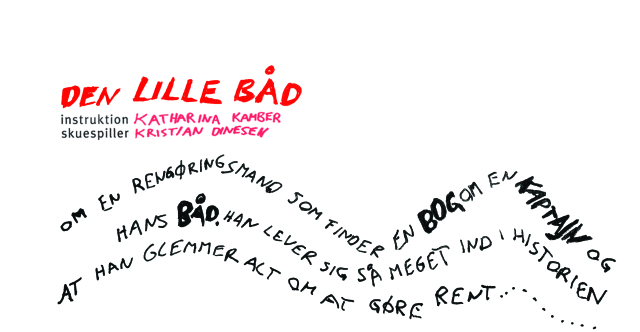 DEN LILLE BÅD
instruktion KATHARINA KAMBER
skuespiller KRISTIAN DINESEN
OM EN RENGØRINGSMAND SOM FINDER EN BOG OM EN KAPTAJN OG
HANS BÅD. HAN LEVER SIG SÅ MEGET IND I HISTORIEN
AT HAN GLEMMER ALT OM AT GØRE RENT..........